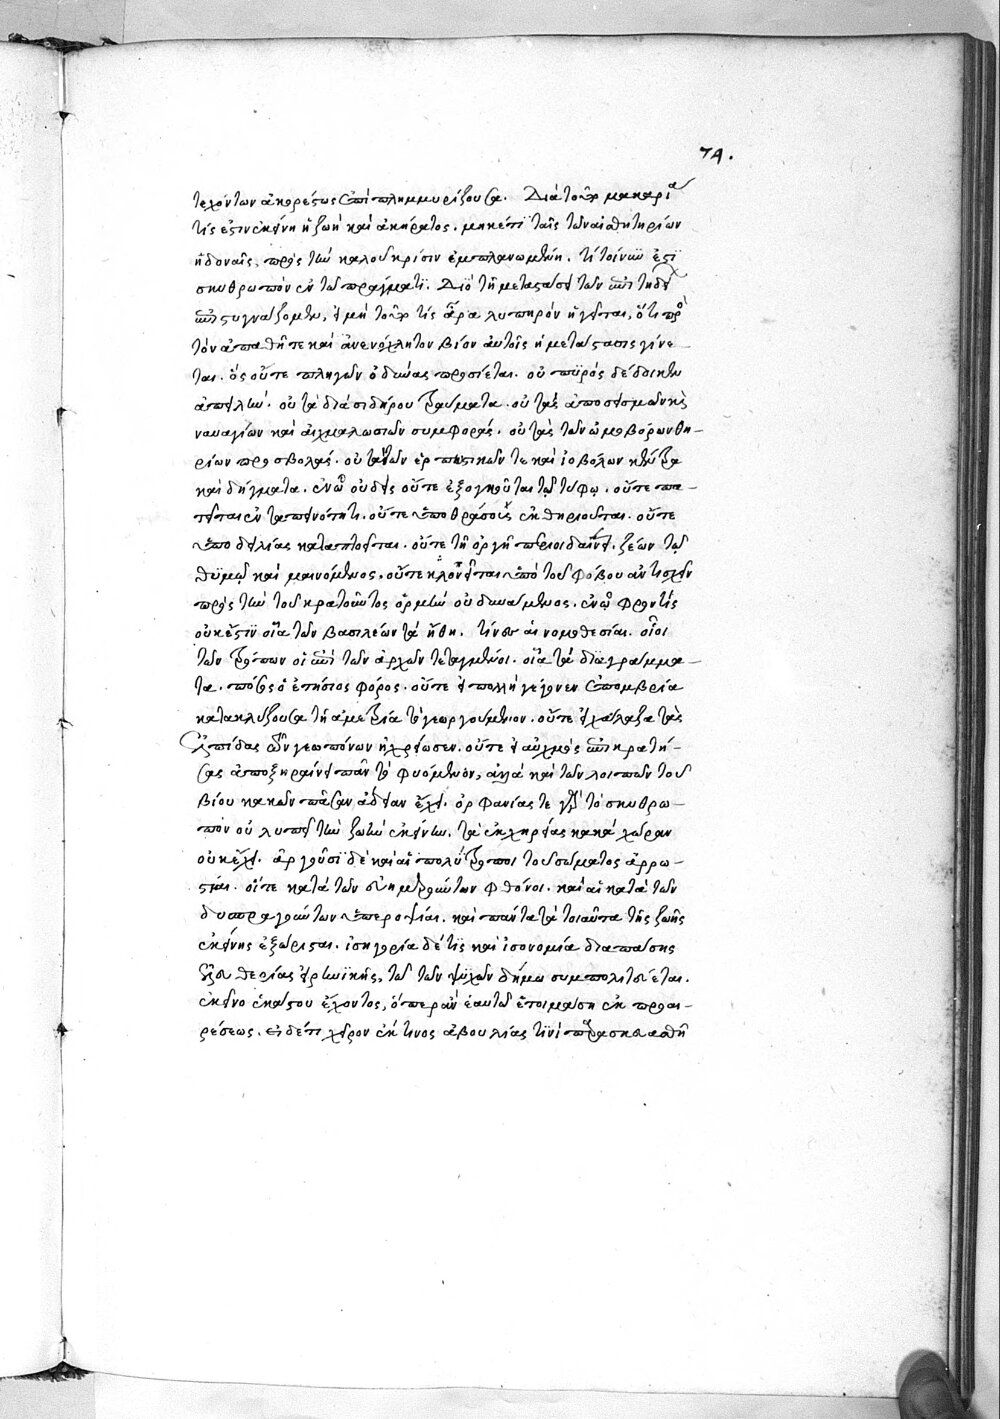 74.
τεχόντων ἀκορέστως ἐπιπλημμυρίζουσα. Διὰ τοῦτο μακαρία
τίς ἐστιν ἐκείνη ἡ ζωὴ καὶ ἀκήρατος. μηκέτι ταῖς τῶν αἰσθητηρίων
ἡδοναῖς, πρὸς τὴν καλοῦ κρίσιν ἐμπλανωμένη. τί τοίνυν ἐστι
σκυθρωπὸν ἐν τῷ πράγματι. Διὸ τῇ μεταστάσει τῶν ἐπιτηδεί
ἐπιστυγνάζομεν, εἰ μὴ τοῦτό τις ἄρα λυπηρὸν ἡγεῖται, ὅτι πρὸς
τὸν ἀπαθῆ τε καὶ ἀνενόχλητον βίον αὐτοῖς ἡ μετάστασις γίνε-
ται. ὃς οὔτε πληγῶν ὀδύνας προσίεται. οὐ πυρὸς δέδοικεν
ἀπειλήν. οὐ τὰ διὰ σιδήρου τραύματα. οὐ τὰς ἀπὸ σεισμῶν κ
ναυαγίων καὶ αἰχμαλωσιῶν συμφοράς. οὐ τὰς τῶν ὠμοβόρων θη-
ρίων προσβολάς. οὐ τὰ τῶν ἑρπυστικῶν τε καὶ ἰοβόλων κέντρα
καὶ δήγματα. ἐν ᾧ οὐδεὶς οὔτε ἐξογκοῦται τῷ τύφῳ. οὔτε πα-
τεῖται ἐν ταπεινότητι. οὔτε ὑπὸ θράσους ἐκθηριοῦται. οὔτε
ὑπὸ δειλίας καταπτοεῖται. οὔτε τῇ ὀργῇ περιοιδαίνει. ζέων τῷ
θυμῷ καὶ μαινόμενος, οὔτε κλονεῖται ὑπὸ τοῦ φόβου ἀντισχεῖν
πρὸς τὴν τοῦ κρατοῦντος ὁρμὴν οὐ δυνάμενος. ἐν ᾧ φροντὶς
οὐκ ἔστιν οἷα τῶν βασιλέων τὰ ἤθη. τίνες αἱ νομοθεσίαι. οἷοι
τῶν τρόπων οἱ ἐπὶ τῶν ἀρχῶν τεταγμένοι. οἷα τὰ διαγράμμα-
τα. πόσος ὁ ἐτήσιος φόρος. οὔτε εἰ πολλὴ γέγονεν ἐπομβρία
κατακλύζουσα τῇ ἀμετρίᾳ τὸ γεωργούμενον. οὔτε εἰ χάλαζα τὰς
ἐλπίδας τῶν γεωπόνων ἠχρείωσεν. οὔτε εἰ αὐχμὸς ἐπικρατή-
σας ἀποξηραίνει πᾶν τὸ φυόμενον, ἀλλὰ καὶ τῶν λοιπῶν τοῦ
βίου κακῶν πᾶσαν ἄδειαν ἔχει. ὀρφανίας τε γὰρ τὸ σκυθρω-
πὸν οὐ λυπεῖ τὴν ζωὴν ἐκείνην. τὰ ἐκ χηρείας κακὰ χώραν
οὐκ ἔχει. ἀργοῦσι δὲ καὶ αἱ πολύτροποι τοῦ σώματος ἀρρω-
στίαι. οἵ τε κατὰ τῶν εὐημερούντων φθόνοι. καὶ αἱ κατὰ τῶν
δυσπραγούντων ὑπεροψίαι. καὶ πάντα τὰ τοιαῦτα τῆς ζωῆς
ἐκείνης ἐξώρισται. ἰσηγορία δέ τις καὶ ἰσονομία διὰ πάσης
ἐλευθερίας εἰρηνικῆς, τῷ τῶν ψυχῶν δήμῳ συμπολιτεύεται.
ἐκεῖνο ἑκάστου ἔχοντος, ὅπερ ἂν ἑαυτῷ ἑτοιμάσῃ ἐκ προαι-
ρέσεως. εἰ δέ τι χεῖρον ἔκ τινος ἀβουλίας τινὶ παρασκευασθῇ